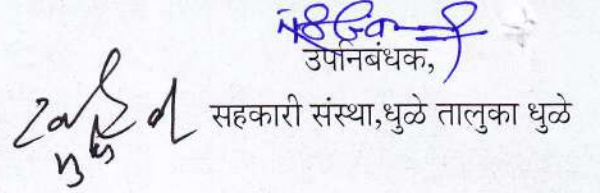 उपनिबंधक,
सहकारी संस्था,धुळे तालुका धुळे